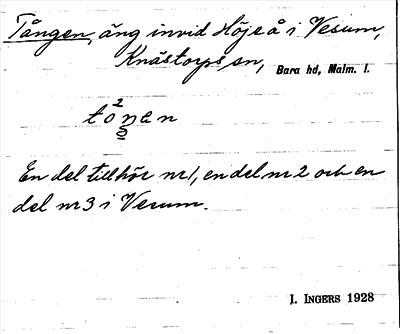 Tången, äng invid Höje å i Vesum,
Knästorps sn, Bara hd, Malm. l.
En del tillhör nr1, en del nr 2 och en
del nr 3 i Vesum.
J. INGERS 1928